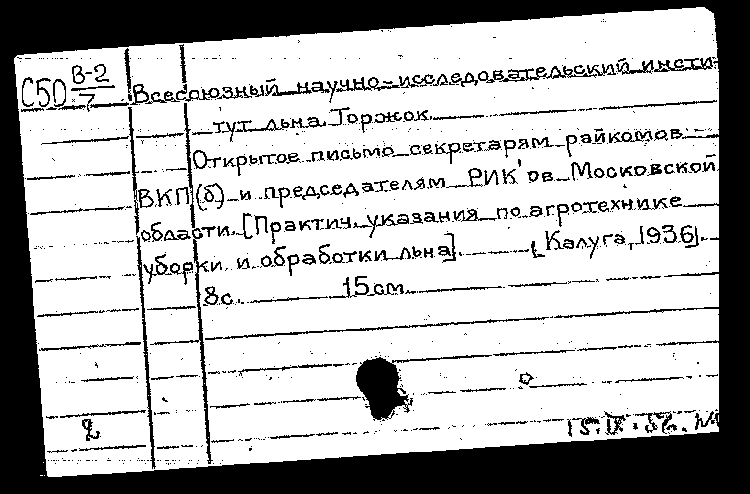 С50 В-2/7 Всесоюзный научно-исследовательский инсти-
тут льна. Торжок.
Открытое письмо секретарям райкомов
ВКП(б) и председателям РИК'ов Московской
области. [Практич. указания по агротехнике
уборки и обработки льна]. [Калуга, 1936].
8с. 15см.
15.IX.52.